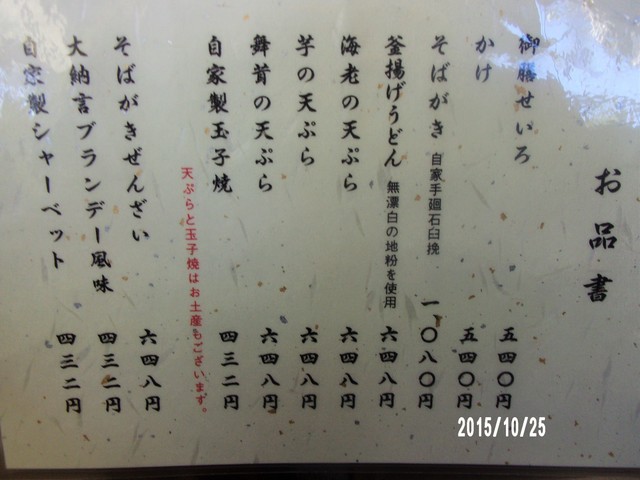 お品書
御膳せいろ 五四〇円
かけ 五四〇円
そばがき 自家手廻石臼挽 一、〇八〇円
釜揚げうどん 無漂白の地粉を使用 六四八円
海老の天ぷら 六四八円
芋の天ぷら 六四八円
舞茸の天ぷら 六四八円
自家製玉子焼 四三二円
天ぷらと玉子焼はお土産もございます。
そばがきぜんざい 六四八円
大納言ブランデー風味 四三二円
自家製シャーベット 四三二円
2015/10/25